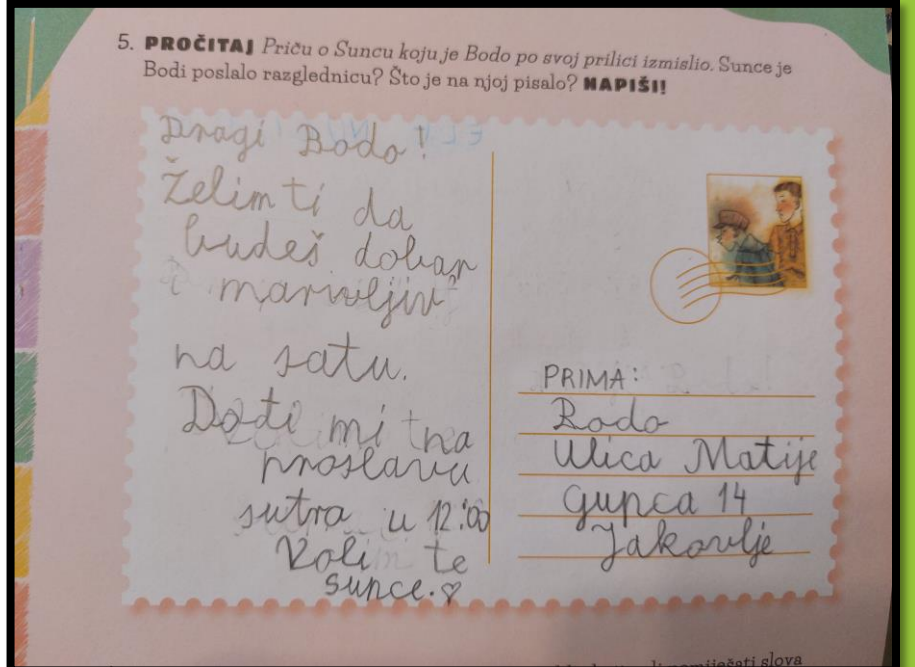 5. PROČITAJ Priču o Suncu koju je Bodo po svoj prilici izmislio. Sunce je
Bodi poslalo razglednicu? Što je na njoj pisalo? NAPIŠI!
Dragi Bodo!
Želim ti da
budeš dobar
i marwljiv
na satu.
Dođi mi na
proslavu
sutra u 12:00
Voli te
sunce.♡
PRIMA:
Bodo
Ulica Matije
gupca 14
Jakovlje
slova